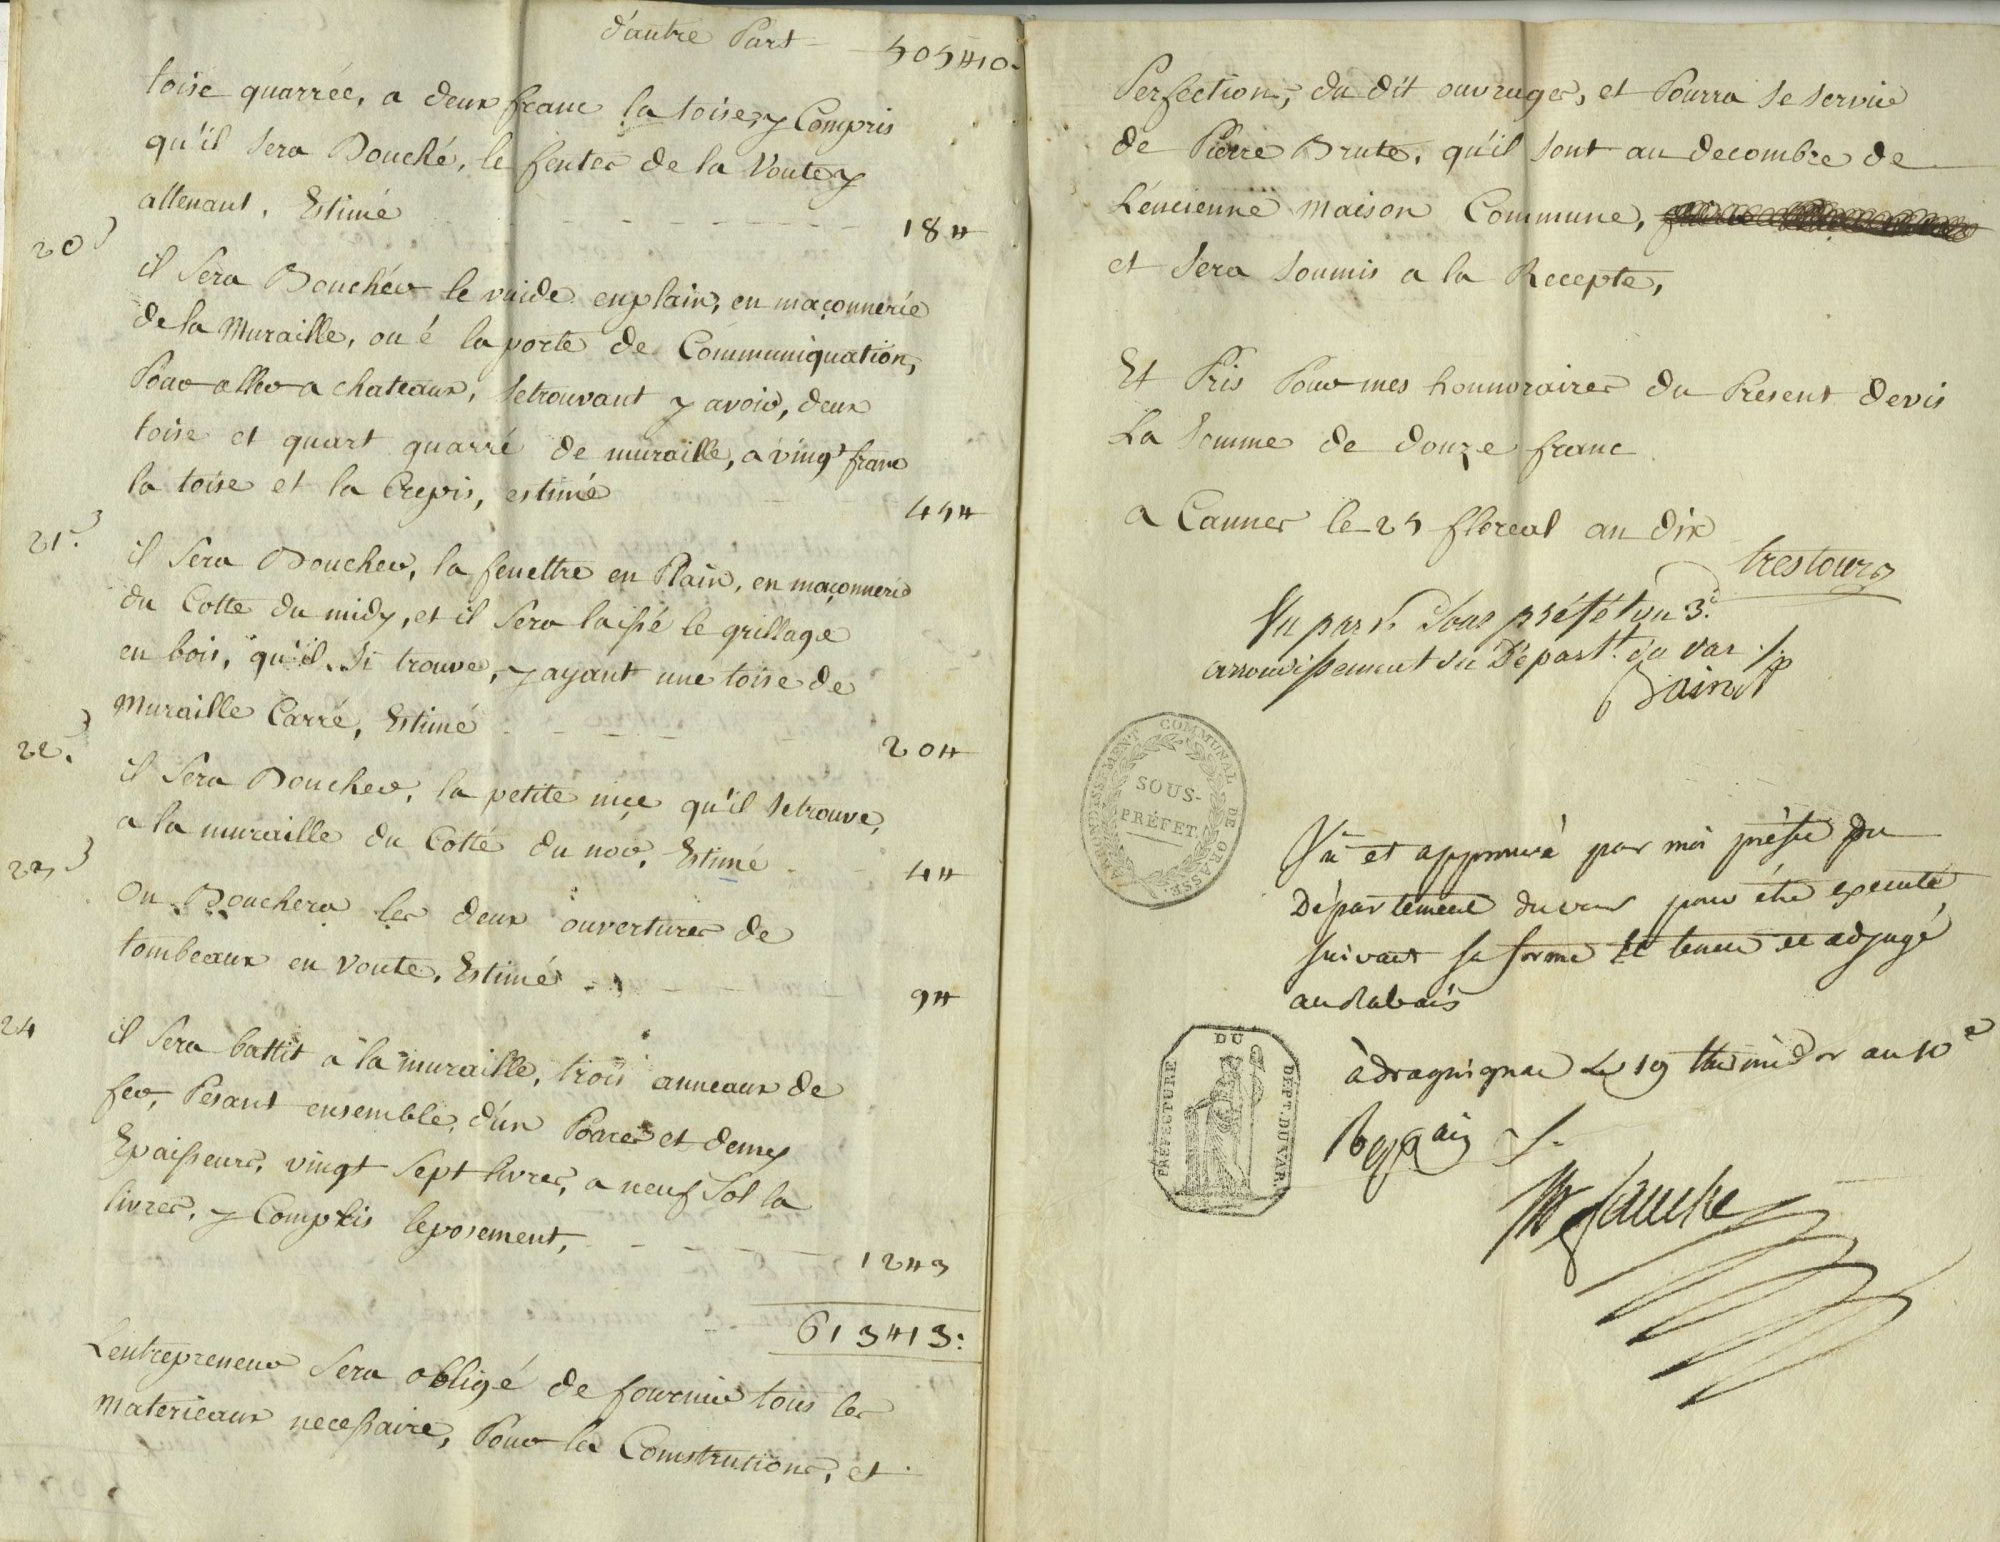 d'autre Part 505₶10.
toise quarrée, a deux franc la toise, y Compris
qu'il Sera Bouché, le fentes de la Voute y
attenant, Estimé 18₶
20° il Sera Boucher le vuide en plain, en maçonnerie
de la Muraille, ou é la porte de Communiquation,
Pour aller a chateaux, Se trouvant y avoir, deux
toise et quart quarré de muraille, a vingt franc
la toise et la Crepis, estimé 45₶
21° il Sera Boucher, la fenettre en Plain, en maçonnerie
du Cotte du midy, et il Sera laissé le grillage
en bois, qu'il Si trouve, y ayant une toise de
Muraille Carré, Estimé 20₶
22° il Sera Boucher, la petite niçe qu'il Se trouve,
a la muraille du Cotté du nor, Estimé 4₶
23° On Bouchera les deux ouvertures de
tombeaux en Voute, Estimé 9₶
24 il Sera battit a la muraille, trois anneaux de
fer, Pesant ensemble, d'un Poares et demy
Epaisseurs, vingt Sept livres, a neuf Sol la
livres, y Compris leposement, 12₶3
613₶13:
Lentrepreneur Sera obligé de fournir tous les
Materieaux necessaire, Pour la Comstrutions, et
Perfections, du dit ouvrages, et Pourra Se Servir
de Pierre Brute, qu'il Sont au decombre de
L'encienne Maison Commune,
et Sera Soumis a la Recepte,
Et Pris Pour mes honnoraires du Present devis
La Somme de douze franc
a Cannes le 25 floreal an dix
trestour
Vu par le Sous préfét du 3e
arrondissement du Depart.t du var
ARRONDISSEMENT COMMUNAL DE GRASSE.
SOUS-
PRÉFET.
Vu et approuvé par moi préfet du
Département du var pour être executé
suivant sa forme et teneur et adjugé
au Rabais
à draguignan Le 19 thermidor an 10e
PRÉFECTURE DU DÉPT. DU VAR.
Fauche